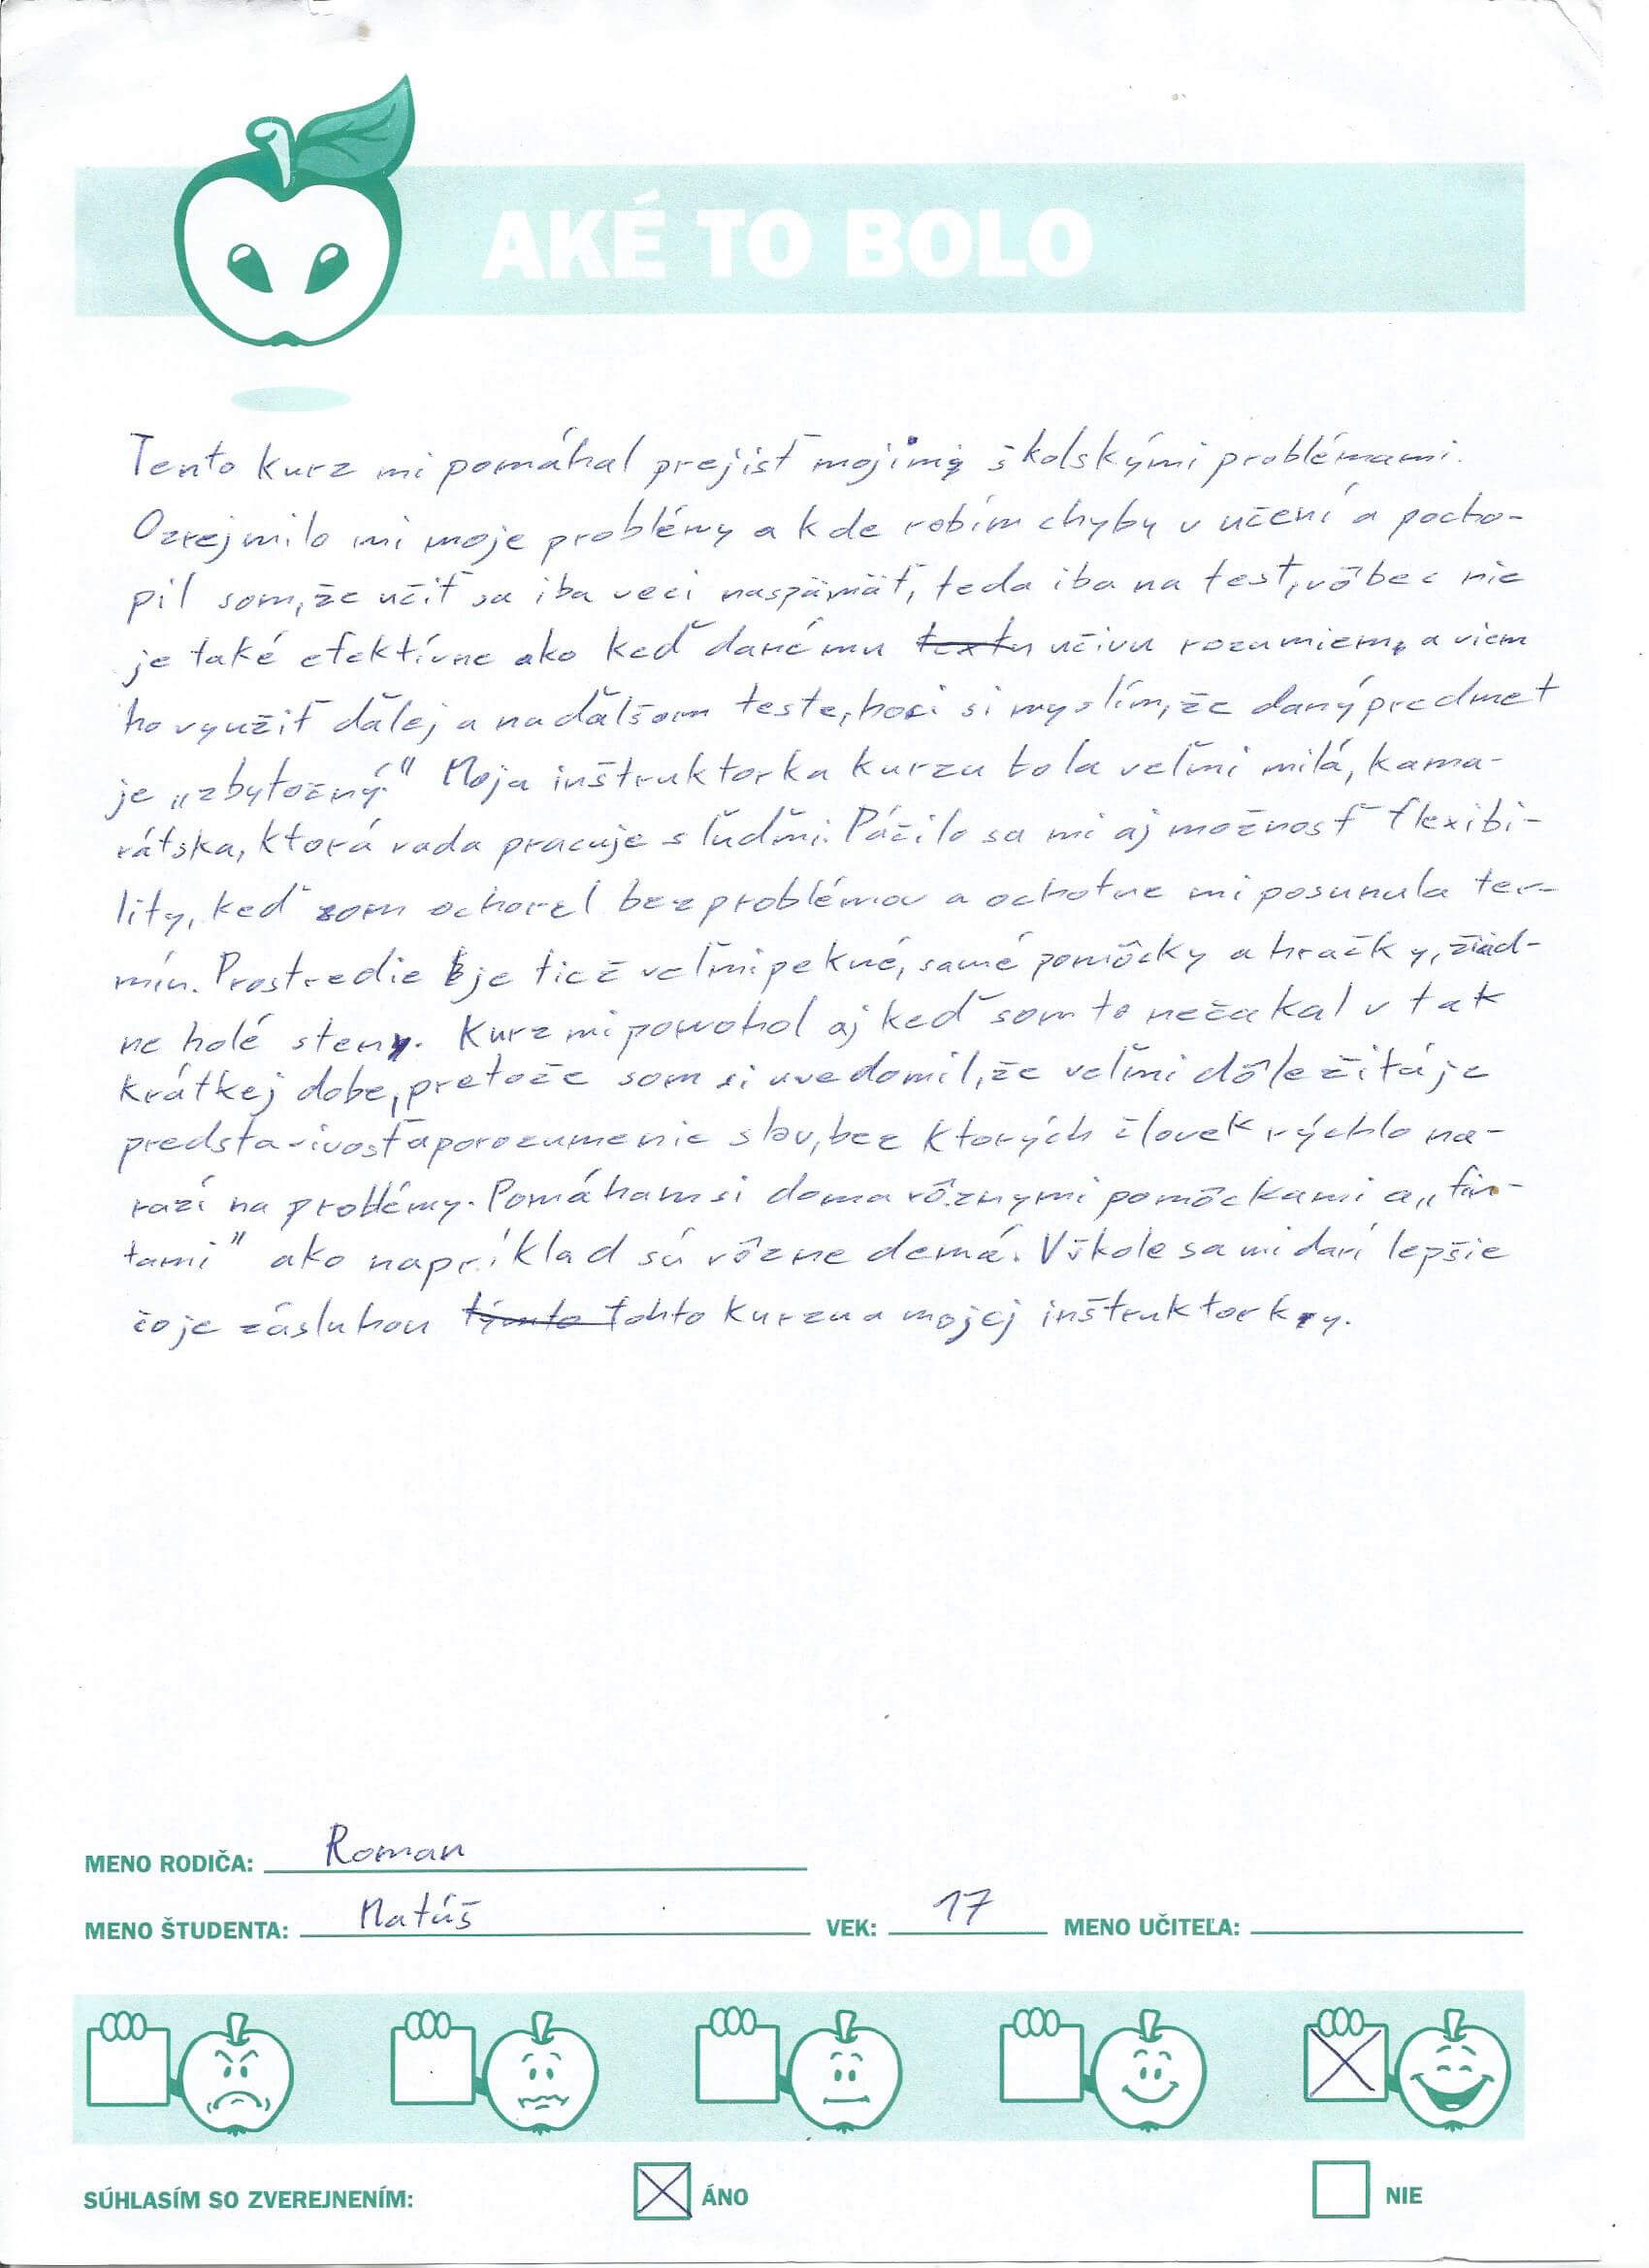 AKÉ TO BOLO
Tento kurz mi pomáhal prejisť mojimi školskými problémami.
Ozrejmilo mi moje problémy a kde robím chyby v učení a pocho-
pil som, že učiť sa iba veci naspämäť, teda iba na test, vôbec nie
je také efektívne ako keď danému učivu rozumiem, a viem
ho využiť ďalej a na ďaľšom teste, hoci si myslím, že daný predmet
je „zbytočný." Moja inštruktorka kurzu bola veľmi milá, kama-
rátska, ktorá rada pracuje s ľuďmi. Páčilo sa mi aj možnosť flexibi-
lity, keď som ochorel bez problémov a ochotne mi posunula ter-
mín. Prostredie je tiež veľmi pekné, samé pomôcky a hračky, žiad-
ne holé steny. Kurz mi pomohol aj keď som to nečakal v tak
krátkej dobe, pretože som si uvedomil, že veľmi dôležitá je
predstavivosť a porozumenie slov, bez ktorých človek rýchlo na-
razí na problémy. Pomáham si doma rôznymi pomôckami a „fin-
tami" ako napríklad sú rôzne demá. V škole sa mi darí lepšie
čo je zásluhou tohto kurzu a mojej inštruktorky.
MENO RODIČA: Roman
MENO ŠTUDENTA: Matúš VEK: 17 MENO UČITEĽA:
SÚHLASÍM SO ZVEREJNENÍM: ÁNO NIE